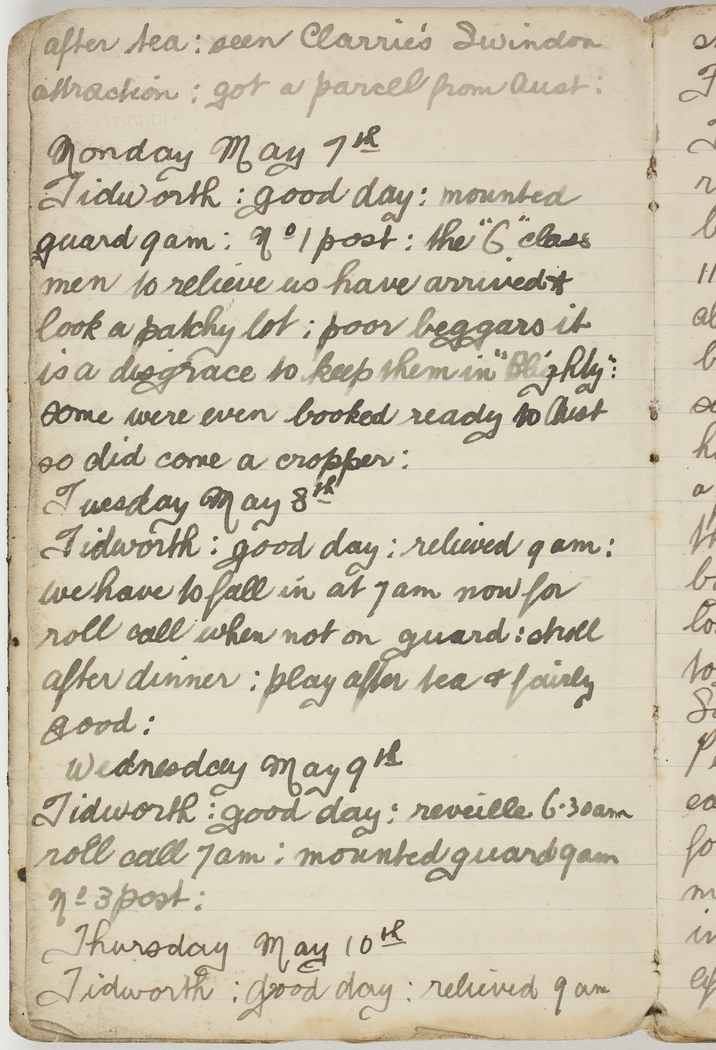 after tea : seen Clarrie's Swindon
attraction : got a parcel from Aust :
Monday May 7th
Tidworth : good day : mounted
guard 9am : No 1 post : the "G" class
men to relieve us have arrived &
look a patchy lot : poor beggars it
is a disgrace to keep them in "Blighty" :
some were even booked ready to Aust
so did come a cropper :
Tuesday May 8th
Tidworth : good day : relieved 9am :
we have to fall in at 7am now for
roll call when not on guard : stroll
after dinner : play after tea & fairly
good :
Wednesday May 9th
Tidworth : good day : reveille 6.30am
roll call 7am : mounted guard 9am
No 3 post :
Thursday May 10th
Tidworth : good day : relieved 9am